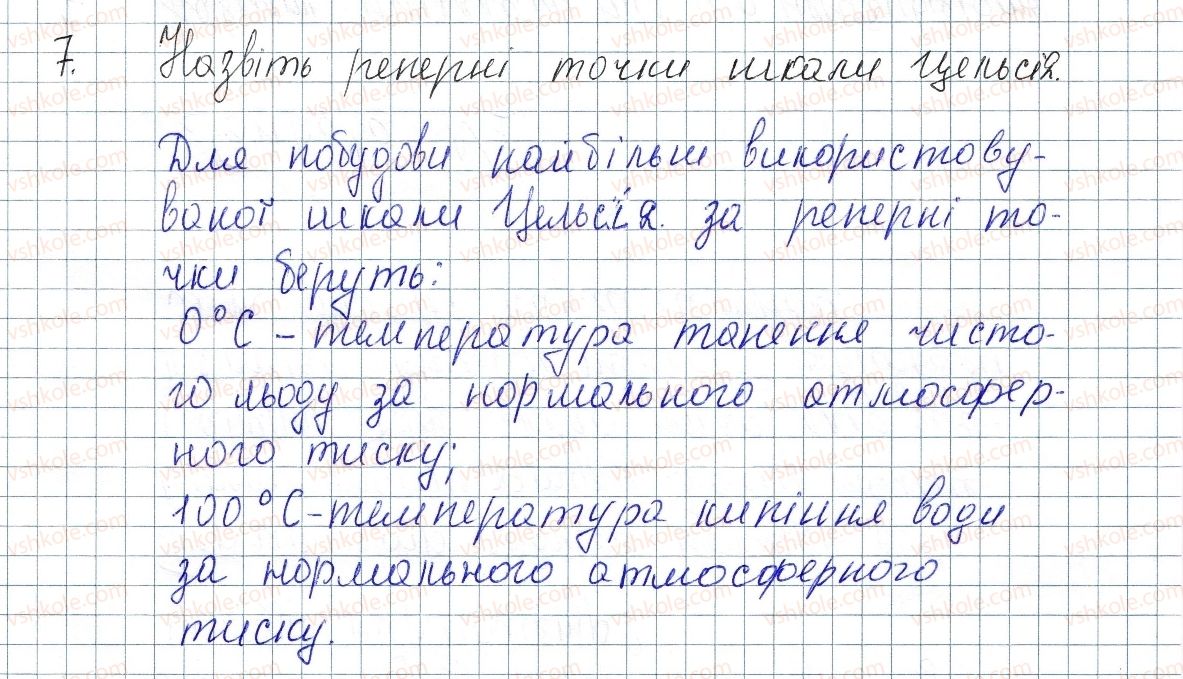 7. Назвіть реперні точки шкали Цельсія.
Для побудови найбільш використову-
ваної шкали Цельсія. за реперні то-
чки беруть:
0°С - температура танення чисто-
го льоду за нормального атмосфер-
ного тиску;
100°С - температура кипіння води
за нормального атмосферного
тиску.